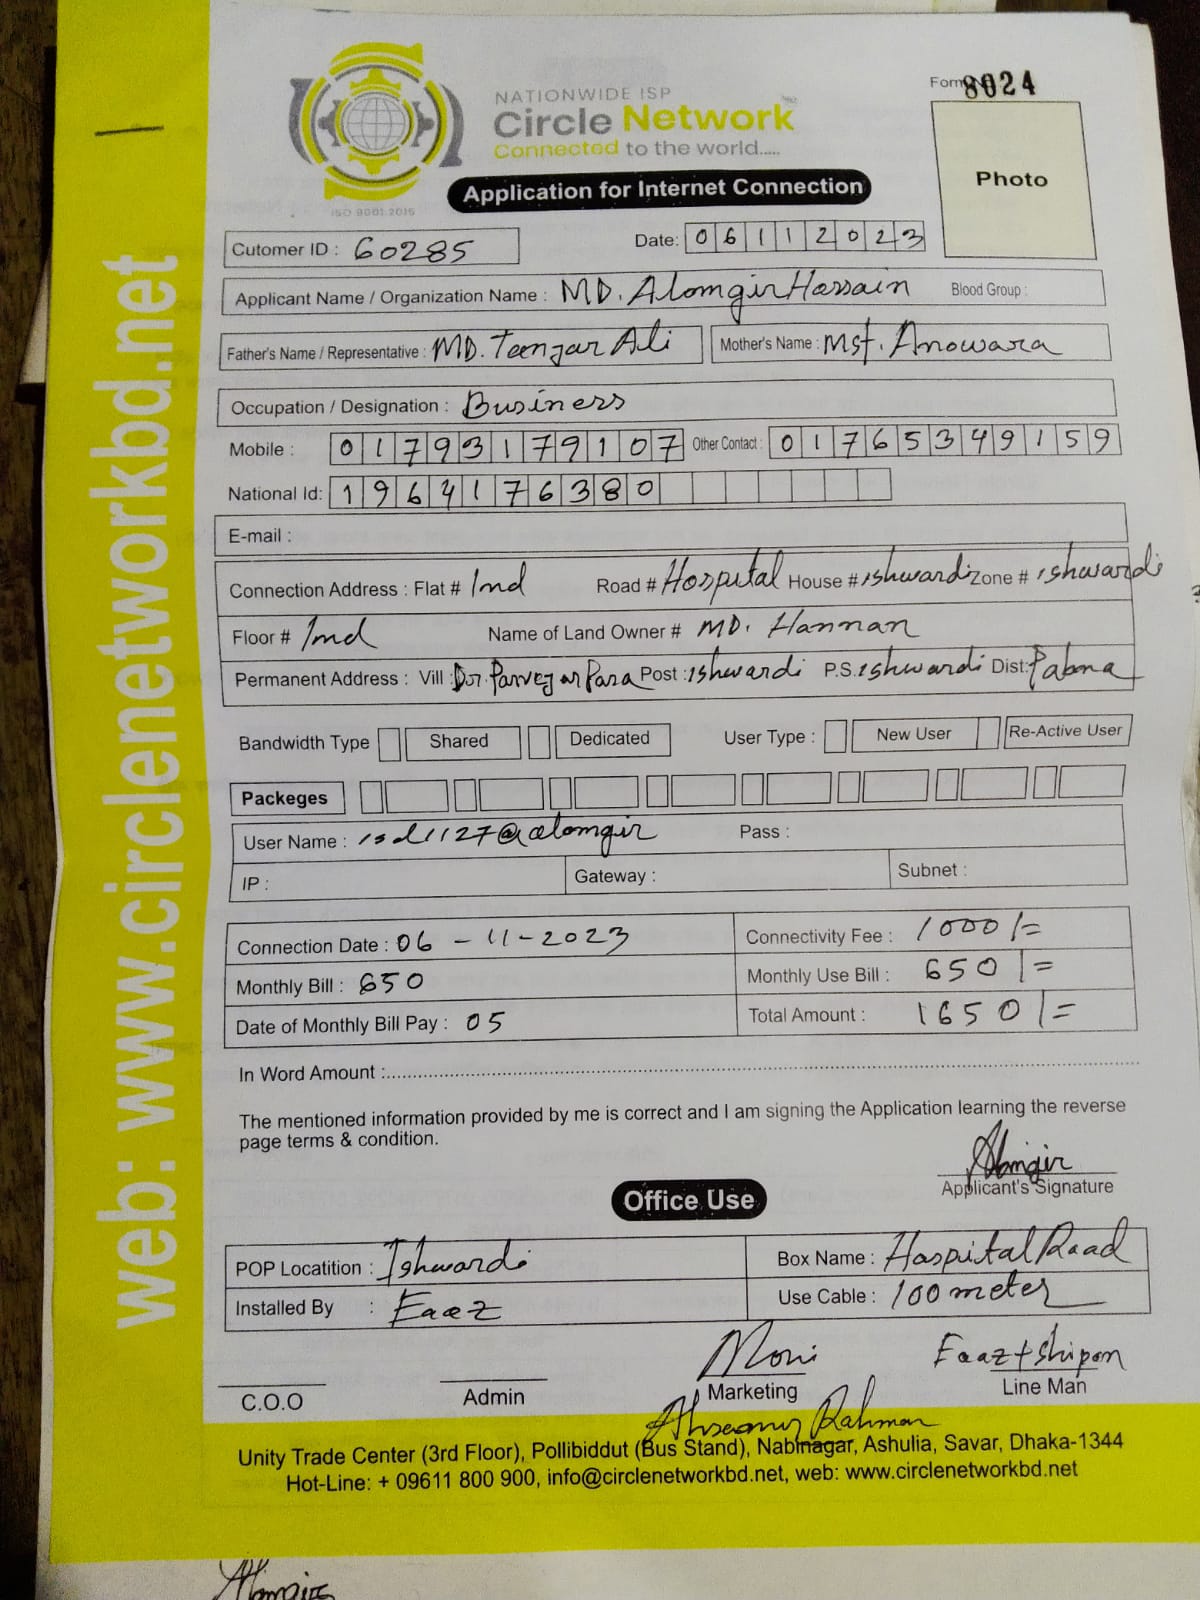 NATIONWIDE ISP
Circle Network
Connected to the world.....
ISO 9001:2015
Form 8024
Photo
Application for Internet Connection
Cutomer ID : 60285
Date: 06112023
Applicant Name / Organization Name : MD. Alomgir Hossain Blood Group :
Father's Name / Representative : MD. Teenjar Ali Mother's Name : Mst. Anowara
Occupation / Designation : Business
Mobile : 01793179107 Other Contact : 01765349159
National Id: 1964176380
E-mail :
Connection Address : Flat # 2nd Road # Hospital House # ishwardi Zone # ishwardi
Floor # 2nd Name of Land Owner # MD. Hannan
Permanent Address : Vill : Dr. Para Post : ishwardi P.S. ishwardi Dist: Pabna
Bandwidth Type Shared Dedicated User Type : New User Re-Active User
Packeges
User Name : isd1127@alomgir Pass :
IP : Gateway : Subnet :
Connection Date : 06-11-2023 Connectivity Fee : 1000/=
Monthly Bill : 650 Monthly Use Bill : 650/=
Date of Monthly Bill Pay : 05 Total Amount : 1650/=
In Word Amount :
The mentioned information provided by me is correct and I am signing the Application learning the reverse
page terms & condition.
Alomgir
Applicant's Signature
Office Use
POP Locatition : Ishwardi Box Name : Hospital Road
Installed By : Eaaz Use Cable : 100 meter
Moni Eaaz + Shipon
C.O.O Admin Marketing Line Man
Rahman
Unity Trade Center (3rd Floor), Pollibiddut (Bus Stand), Nabinagar, Ashulia, Savar, Dhaka-1344
Hot-Line: + 09611 800 900, info@circlenetworkbd.net, web: www.circlenetworkbd.net
web: www.circlenetworkbd.net
Alomgir